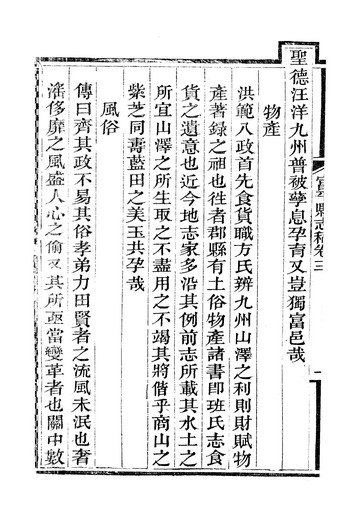 聖德汪洋九州普被孳息孕育又豈獨富邑哉
物產
洪範八政首先食貨職方氏辨九州山澤之利則財賦物
產著錄之祖也徃者郡縣有土俗物產諸書即班氏志食
貨之遺意也近今地志家多沿其例前志所載其水土之
所宜山澤之所生取之不盡用之不竭其將偕乎商山之
紫芝同壽藍田之美玉共孕哉
風俗
傳曰齊其政不易其俗孝弟力田賢者之流風未泯也奢
淫侈靡之風盛人心之偷又其所亟當變革者也關中數
富平縣志稿卷三